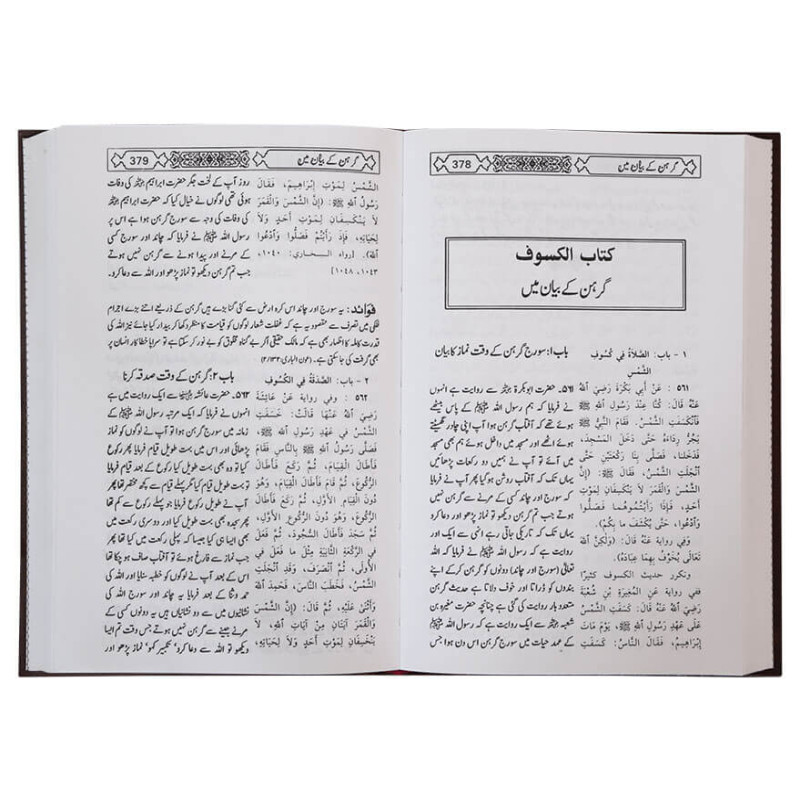 گرہن کے بیان میں
378
کتاب الکسوف
گرہن کے بیان میں
١ - باب: الصَّلاَةُ فِي كُسُوفِ
الشَّمْسِ
٥٦١ : عَنْ أَبِي بَكْرَةَ رَضِيَ اللهُ
عَنْهُ قَالَ: كُنَّا عِنْدَ رَسُولِ اللهِ ﷺ
فَانْكَسَفَتِ الشَّمْسُ. فَقَامَ النَّبِيُّ ﷺ
يَجُرُّ رِدَاءَهُ حَتَّى دَخَلَ المَسْجِدَ،
فَدَخَلْنَا، فَصَلَّى بِنَا رَكْعَتَيْنِ حَتَّى
انْجَلَتِ الشَّمْسُ، فَقَالَ ﷺ: (إِنَّ
الشَّمْسَ وَالْقَمَرَ لاَ يَنْكَسِفَانِ لِمَوْتِ
أَحَدٍ، فَإِذَا رَأَيْتُمُوهُمَا فَصَلُّوا
وَادْعُوا، حَتَّى يُكْشَفَ مَا بِكُمْ).
وَفِي رِوَايَةٍ عَنْهُ قَالَ: (وَلٰكِنَّ اللهَ
تَعَالَى يُخَوِّفُ بِهِمَا عِبَادَهُ).
وتكرر حديث الكسوف كثيرًا
ففي رواية عَنِ المُغِيرَةِ بْنِ شُعْبَةَ
رَضِيَ اللهُ عَنْهُ قَالَ: كَسَفَتِ الشَّمْسُ
عَلَى عَهْدِ رَسُولِ اللهِ ﷺ، يَوْمَ مَاتَ
إِبْرَاهِيمُ، فَقَالَ النَّاسُ: كَسَفَتِ
باب ۱: سورج گرہن کے وقت نماز کا بیان
۵۶۱۔ حضرت ابوبکرہ رضی اللہ عنہ سے روایت ہے انہوں
نے فرمایا کہ ہم رسول اللہ ﷺ کے پاس بیٹھے
ہوئے تھے کہ آفتاب گرہن ہوا آپ اپنی چادر گھسیٹتے
ہوئے اٹھے اور مسجد میں داخل ہوئے ہم بھی مسجد
میں آئے تو آپ نے ہمیں دو رکعات پڑھائیں
یہاں تک کہ آفتاب روشن ہو گیا پھر آپ نے فرمایا
کہ سورج اور چاند کسی کے مرنے سے گرہن نہیں
ہوتے جب تم گرہن دیکھو تو نماز پڑھو اور دعا کرو
یہاں تک کہ تاریکی جاتی رہے انہی سے ایک اور
روایت ہے کہ رسول اللہ ﷺ نے فرمایا کہ اللہ
تعالی (سورج اور چاند) دونوں کو گرہن کر کے اپنے
بندوں کو ڈراتا اور خوف دلاتا ہے حدیث گرہن
متعدد بار روایت کی گئی ہے چنانچہ حضرت مغیرہ بن
شعبہ رضی اللہ عنہ سے ایک روایت ہے کہ رسول اللہ ﷺ
کے عہد حیات میں سورج گرہن اس دن ہوا جس
گرہن کے بیان میں
379
الشَّمْسُ لِمَوْتِ إِبْرَاهِيمَ، فَقَالَ
رَسُولُ اللهِ ﷺ: (إِنَّ الشَّمْسَ وَالْقَمَرَ
لاَ يَنْكَسِفَانِ لِمَوْتِ أَحَدٍ وَلاَ
لِحَيَاتِهِ، فَإِذَا رَأَيْتُمْ فَصَلُّوا وَادْعُوا
اللهَ). [رواه البخاري: ١٠٤٠،
١٠٤٣، ١٠٤٨]
روز آپ کے لخت جگر حضرت ابراہیم رضی اللہ عنہ کی وفات
ہوئی تھی لوگوں نے خیال کیا کہ حضرت ابراہیم رضی اللہ عنہ
کی وفات کی وجہ سے سورج گرہن ہوا ہے اس پر
رسول اللہ ﷺ نے فرمایا کہ چاند اور سورج کسی
کے مرنے اور پیدا ہونے سے گرہن نہیں ہوتے
جب تم گرہن دیکھو تو نماز پڑھو اور اللہ سے دعا کرو۔
فوائد: یہ سورج اور چاند اس کرہ ارض سے کئی گنا بڑے ہیں گرہن کے ذریعے اتنے بڑے اجرام
فلکی میں تصرف سے مقصود یہ ہے کہ غفلت شعار لوگوں کو قیامت کا منظر دکھا کر بیدار کیا جائے نیز اللہ کی
قدرت کاملہ کا اظہار بھی ہے کہ مالک حقیقی اگر بے گناہ مخلوق کو بے نور کر سکتا ہے تو سراپا خطا کار انسان پر
بھی گرفت کی جا سکتی ہے۔ (عون الباری: ۲/۱۳۲)
٢ - باب: الصَّدَقَةُ فِي الْكُسُوفِ
٥٦٢ : وفي رواية عَنْ عَائِشَةَ
رَضِيَ اللهُ عَنْهَا قَالَتْ: خَسَفَتِ
الشَّمْسُ فِي عَهْدِ رَسُولِ اللهِ ﷺ،
فَصَلَّى رَسُولُ اللهِ ﷺ بِالنَّاسِ فَقَامَ
فَأَطَالَ الْقِيَامَ، ثُمَّ رَكَعَ فَأَطَالَ
الرُّكُوعَ، ثُمَّ قَامَ فَأَطَالَ الْقِيَامَ، وَهُوَ
دُونَ الْقِيَامِ الأَوَّلِ، ثُمَّ رَكَعَ فَأَطَالَ
الرُّكُوعَ، وَهُوَ دُونَ الرُّكُوعِ الأَوَّلِ،
ثُمَّ سَجَدَ فَأَطَالَ السُّجُودَ، ثُمَّ فَعَلَ
فِي الرَّكْعَةِ الثَّانِيَةِ مِثْلَ مَا فَعَلَ فِي
الأُولَى، ثُمَّ انْصَرَفَ، وَقَدِ انْجَلَتِ
الشَّمْسُ، فَخَطَبَ النَّاسَ، فَحَمِدَ اللهَ
وَأَثْنَى عَلَيْهِ، ثُمَّ قَالَ: (إِنَّ الشَّمْسَ
وَالْقَمَرَ آيَتَانِ مِنْ آيَاتِ اللهِ، لاَ
يَنْخَسِفَانِ لِمَوْتِ أَحَدٍ وَلاَ لِحَيَاتِهِ،
باب ۲: گرہن کے وقت صدقہ کرنا
۵۶۲۔ حضرت عائشہ رضی اللہ عنہا سے ایک روایت میں ہے
انہوں نے فرمایا کہ ایک مرتبہ رسول اللہ ﷺ کے
زمانہ میں سورج گرہن ہوا تو آپ نے لوگوں کو نماز
پڑھائی اور اس میں بہت طویل قیام فرمایا پھر رکوع
کیا تو وہ بھی بہت طویل کیا رکوع کے بعد قیام فرمایا
تو بہت طویل قیام کیا مگر پہلے قیام سے کچھ مختصر تھا پھر
آپ نے طویل رکوع فرمایا جو پہلے رکوع سے کم تھا
پھر سجدہ بھی بہت طویل کیا اور دوسری رکعت میں
بھی ایسا ہی کیا جیسا کہ پہلی رکعت میں کیا تھا پھر
جب نماز سے فارغ ہوئے تو آفتاب صاف ہو چکا تھا
اس کے بعد آپ نے لوگوں کو خطبہ سنایا اور اللہ کی
حمد و ثنا کے بعد فرمایا یہ چاند اور سورج اللہ کی
نشانیوں میں سے دو نشانیاں ہیں یہ دونوں کسی کے
مرنے جینے سے گرہن نہیں ہوتے جس وقت تم ایسا
دیکھو تو اللہ سے دعا کرو، تکبیر کہو، نماز پڑھو اور